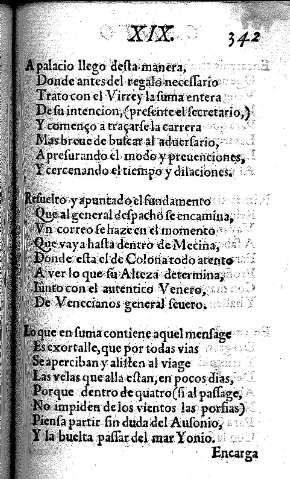 XIX. 342
A palacio llego desta manera,
Donde antes del regalo necessario
Trato con el Virrey la suma entera
De su intencion, (presente el secretario,)
Y començo a traçarse la carrera
Mas breue de buscar al aduersario,
Apresurando el modo y preuenciones,
Y cercenando el tiempo y dilaciones.
Resuelto y apuntado el fundamento
Que al general despachò se encamina,
Vn correo se haze en el momento
Que vaya hasta dentro de Mecina,
Donde està el de Colona todo atento
A ver lo que su Alteza determina,
Iunto con el autentico Venero,
De Venecianos general seuero.
Lo que en suma contiene aquel mensage
Es exortalle, que por todas vias
Se aperciban y alisten al viage
Las velas que alla estan, en pocos dias,
Porque dentro de quatro (si al passage,
No impiden de los vientos las porfias)
Piensa partir sin duda del Ausonio,
Y la buelta passar del mar Yonio.
Encarga